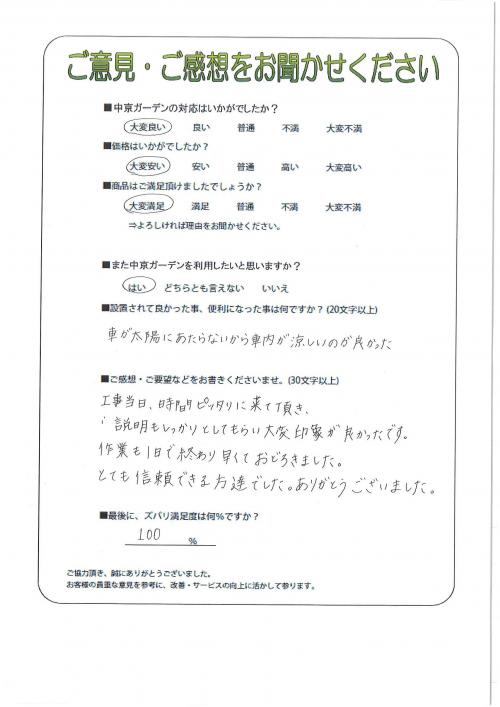 ご意見・ご感想をお聞かせください
■中京ガーデンの対応はいかがでしたか？
大変良い 良い 普通 不満 大変不満
■価格はいかがでしたか？
大変安い 安い 普通 高い 大変高い
■商品はご満足頂けましたでしょうか？
大変満足 満足 普通 不満 大変不満
⇒よろしければ理由をお聞かせください。
■また中京ガーデンを利用したいと思いますか？
はい どちらとも言えない いいえ
■設置されて良かった事、便利になった事は何ですか？(20文字以上)
車が太陽にあたらないから車内が涼しいのが良かった
■ご感想・ご要望などをお書きくださいませ。(30文字以上)
工事当日、時間ピッタリに来て頂き、
説明もしっかりとしてもらい大変印象が良かったです。
作業も1日で終わり早くておどろきました。
とても信頼できる方達でした。ありがとうございました。
■最後に、ズバリ満足度は何％ですか？
100 %
ご協力頂き、誠にありがとうございました。
お客様の貴重な意見を参考に、改善・サービスの向上に活かして参ります。